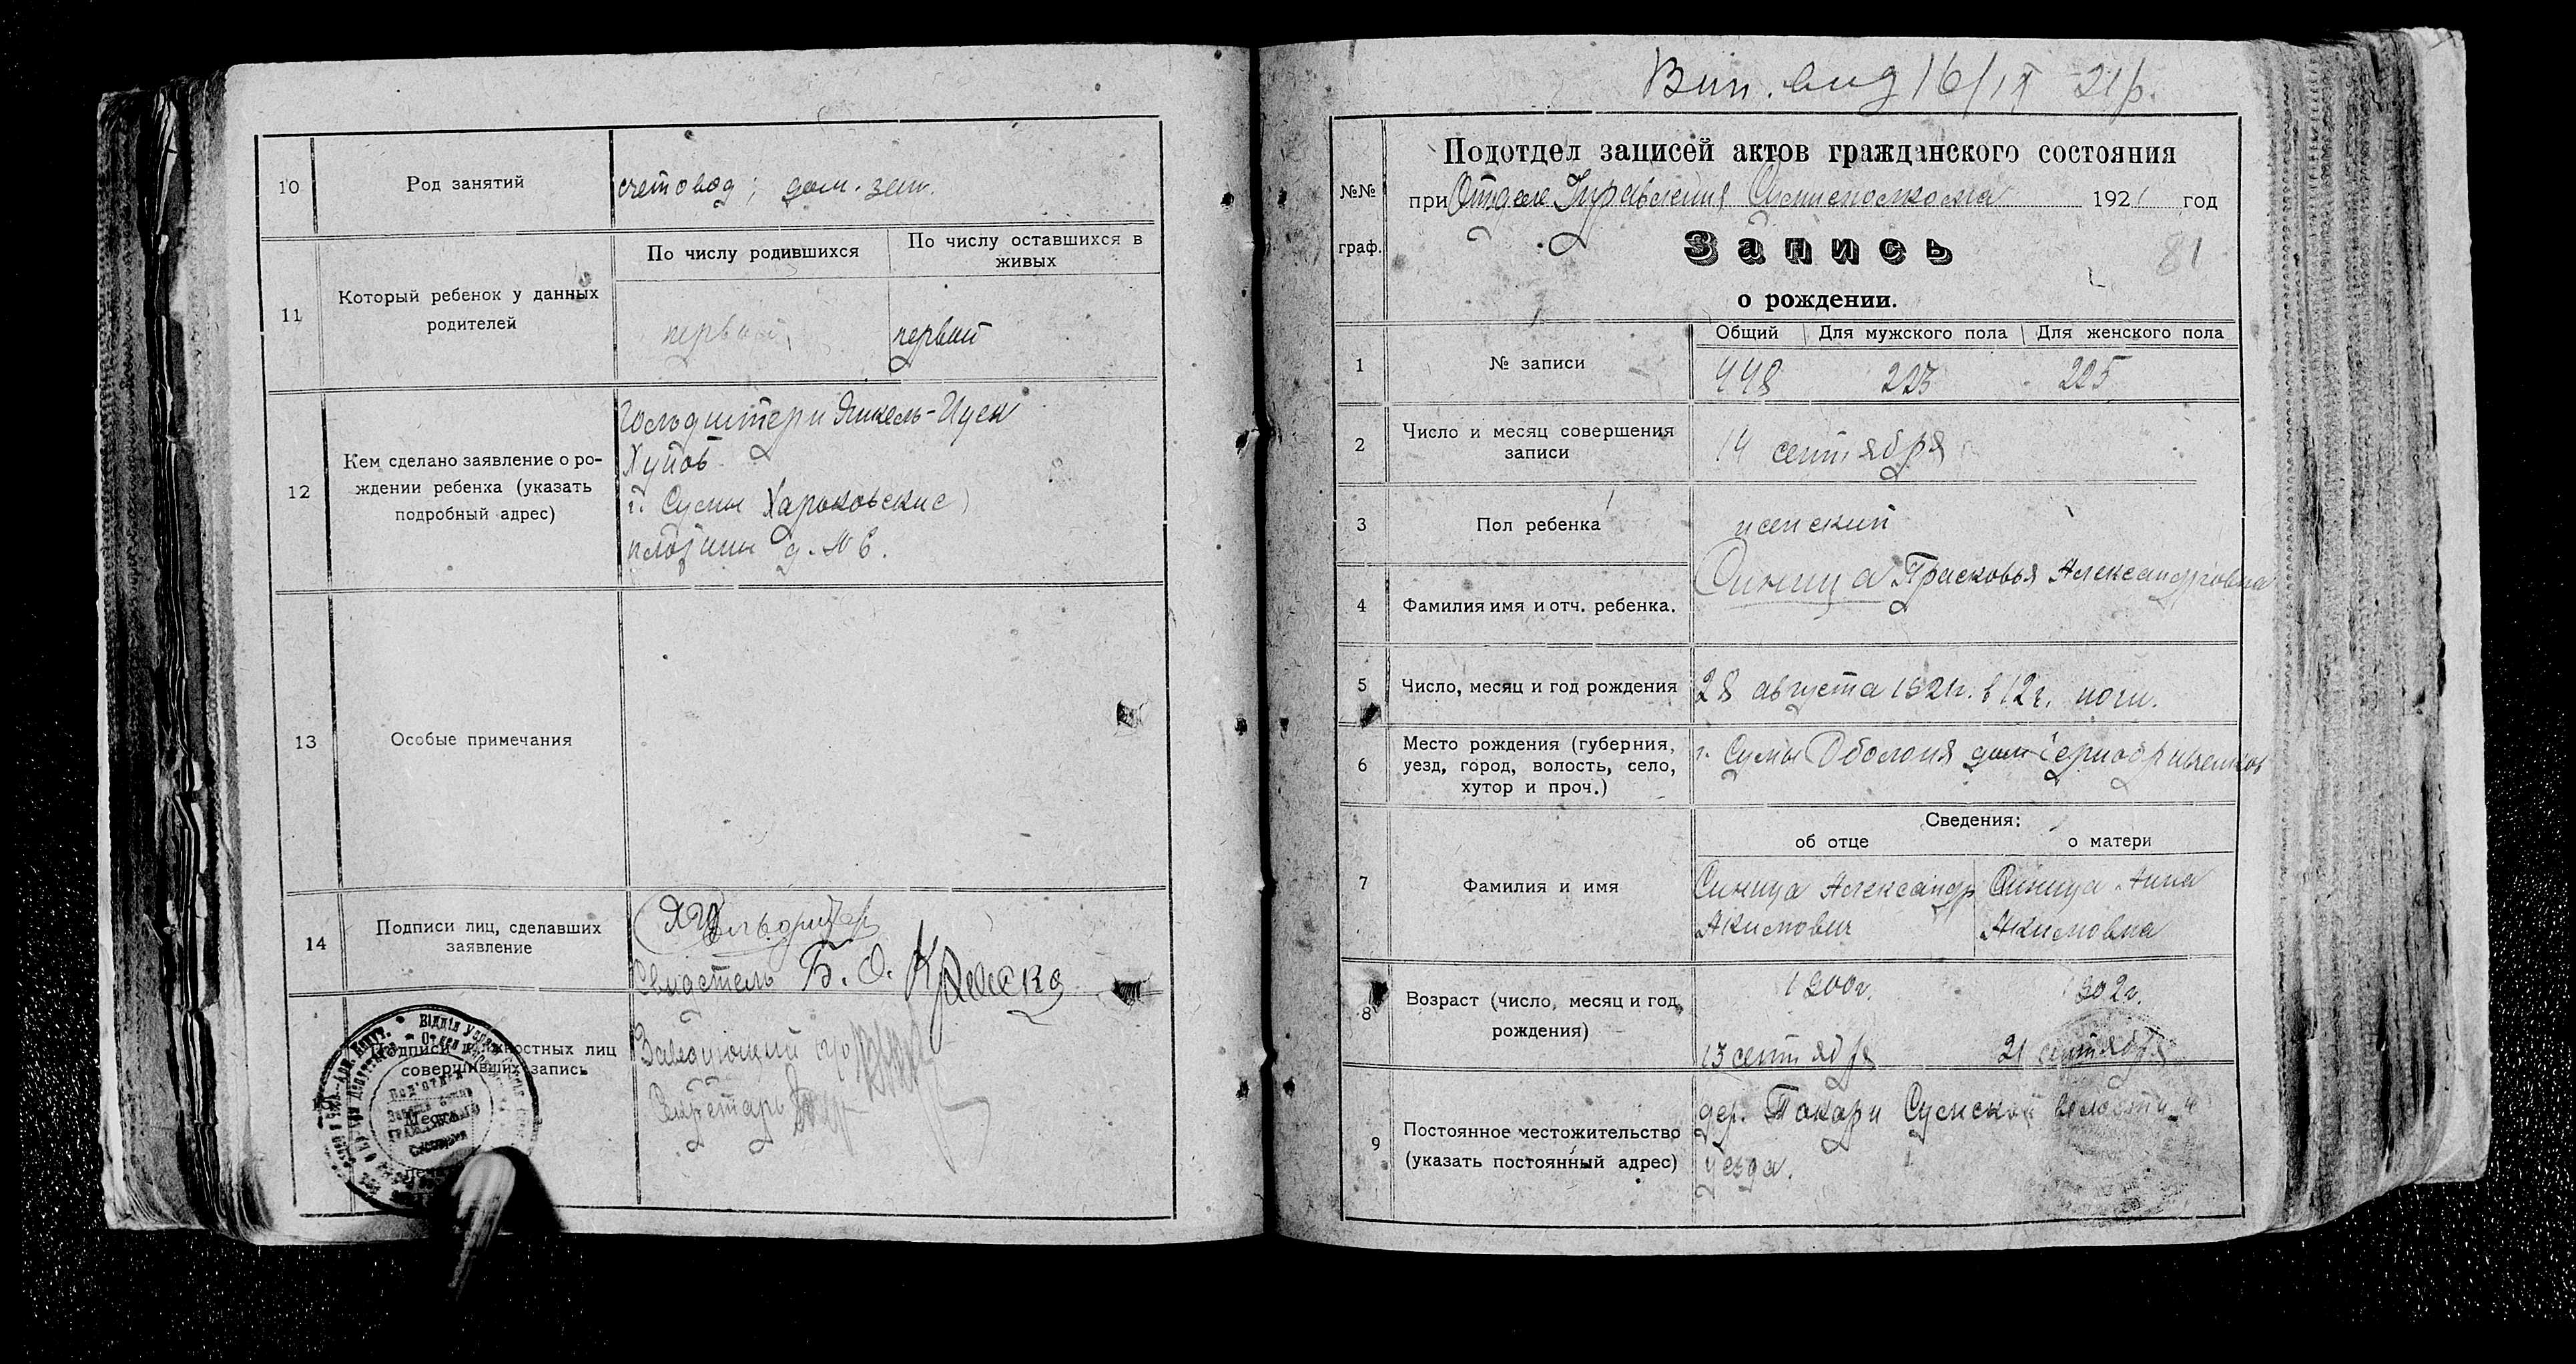 10
Род занятий
счетовод; дом. зан.
11
Который ребенок у данных
родителей
По числу родившихся
По числу оставшихся в
живых
первый
первый
12
Кем сделано заявление о ро-
ждении ребенка (указать
подробный адрес)
Гольдштерн Янкель-Ицек
г. Сумы Харьковские
д. № 6.
13
Особые примечания
14
Подписи лиц, сделавших
заявление
Свидетель Б. О.
Подписи должностных лиц
совершивших запись
Заведующий
Секретарь
Вип. вид 16/IX 21 р.
№№
граф.
Подотдел записей актов гражданского состояния
при Отделе Управления Сумисполкома 1921 год
Запись
81
о рождении.
1
№ записи
Общий
Для мужского пола
Для женского пола
448
223
225
2
Число и месяц совершения
записи
14 сентября
3
Пол ребенка
женский
4
Фамилия имя и отч. ребенка.
Синица Прасковья Александровна
5
Число, месяц и год рождения
28 августа 1921г. в 12 г. ночи.
6
Место рождения (губерния,
уезд, город, волость, село,
хутор и проч.)
г. Сумы Оболоня дом
Сведения:
об отце
о матери
7
Фамилия и имя
Синица Александр
Акимович
Синица Анна
Акимовна
8
Возраст (число, месяц и год
рождения)
1900г.
13 сентября
1902г.
21 сентября
9
Постоянное местожительство
(указать постоянный адрес)
дер. Токари Сумской волости и
уезда.